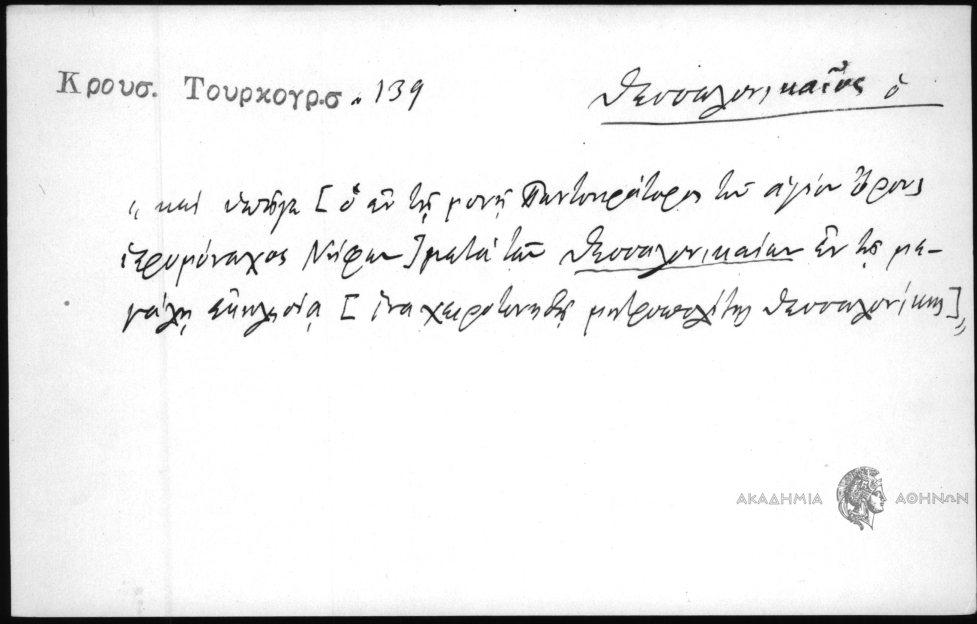 Κρουσ. Τουρκογρ.σ. 139
Θεσσαλονικαῖος ὁ
"καὶ ὑπῆγε [ὁ ἐν τῇ μονῇ Παντοκράτορος τοῦ ἁγίου Ὄρους
ἱερομόναχος Νήφων] μετὰ τῶν Θεσσαλονικαίων ἐν τῇ με-
γάλῃ ἐκκλησίᾳ [ἵνα χειροτονηθῇ μητροπολίτης Θεσσαλονίκης]"
ΑΚΑΔΗΜΙΑ ΑΘΗΝΩΝ